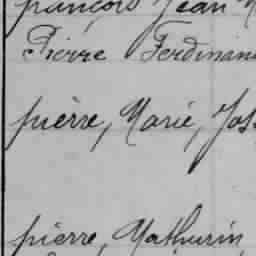 françois Jean
Pierre Ferdinan
pièrre, Marie, Jos
pierre, Mathurin